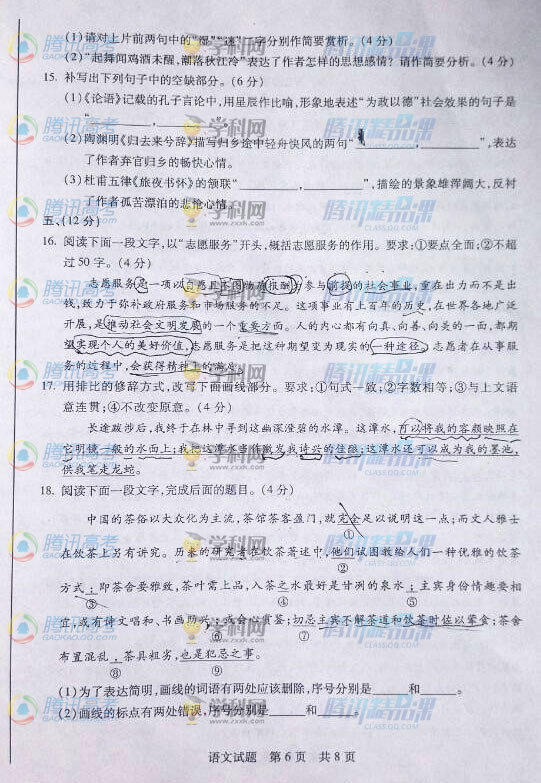 (1)请对上片前两句中的“湿”“迷”二字分别作简要赏析。(4分)
(2)“起舞闻鸡酒未醒,潮落秋江冷”表达了作者怎样的思想感情?请作简要分析。(4分)
15. 补写出下列句子中的空缺部分。(6分)
(1)《论语》记载的孔子言论中,用星辰作比喻,形象地表述“为政以德”社会效果的句子是
“________,________”。
(2)陶渊明《归去来兮辞》描写归乡途中轻舟快风的两句“________,________”,表达
了作者弃官归乡的畅快心情。
(3)杜甫五律《旅夜书怀》的颔联“________,________”,描绘的景象雄浑阔大,反衬
了作者孤苦漂泊的悲怆心情。
五、(12分)
16. 阅读下面一段文字,以“志愿服务”开头,概括志愿服务的作用。要求:①要点全面;②不超
过50字。(4分)
志愿服务是一项以自愿且不图物质报酬为参与前提的社会事业,重在出力而不是出
钱,致力于弥补政府服务和市场服务的不足。这项事业有上百年的历史,在世界各地广泛
开展,是推动社会文明发展的一个重要方面。人的内心都有向真、向善、向美的一面,都期
望实现个人的美好价值,志愿服务是把这种期望变为现实的一种途径。志愿者在从事服
务的过程中,会获得精神上的满足。
17. 用排比的修辞方式,改写下面画线部分。要求:①句式一致;②字数相等;③与上文语
意连贯;④不改变原意。(4分)
长途跋涉后,我终于在林中寻到这幽深澄碧的水潭。这潭水,可以将我的容颜映照在
它明镜一般的水面上;我把这潭水当作激发我诗兴的佳酿;这潭水还可以成为我的墨池,
供我笔走龙蛇。
18. 阅读下面一段文字,完成后面的题目。(4分)
中国的茶俗以大众化为主流,茶馆茶客盈门,就完全足以说明这一点;而文人雅士
①
在饮茶上另有讲究。历来的研究者在饮茶著述中,他们试图教给人们一种优雅的饮茶
②
方式:即茶舍要雅致,茶叶需上品,入茶之水最好是甘冽的泉水;主宾身份情趣要相
③ ④ ⑤
宜,或有诗文唱和、书画助兴;或会心清芬;切忌主宾不解茶道和饮茶时佐以荤食;茶舍
⑥ ⑦
布置混乱,茶具粗劣,也是犯忌之事。
⑧ ⑨
(1)为了表达简明,画线的词语有两处应该删除,序号分别是____和____。
(2)画线的标点有两处错误,序号分别是____和____。
语文试题 第6页 共8页
腾讯高考
GAOKAO.QQ.COM
学科网
www.zxxk.com
腾讯精品课
CLASS.QQ.COM